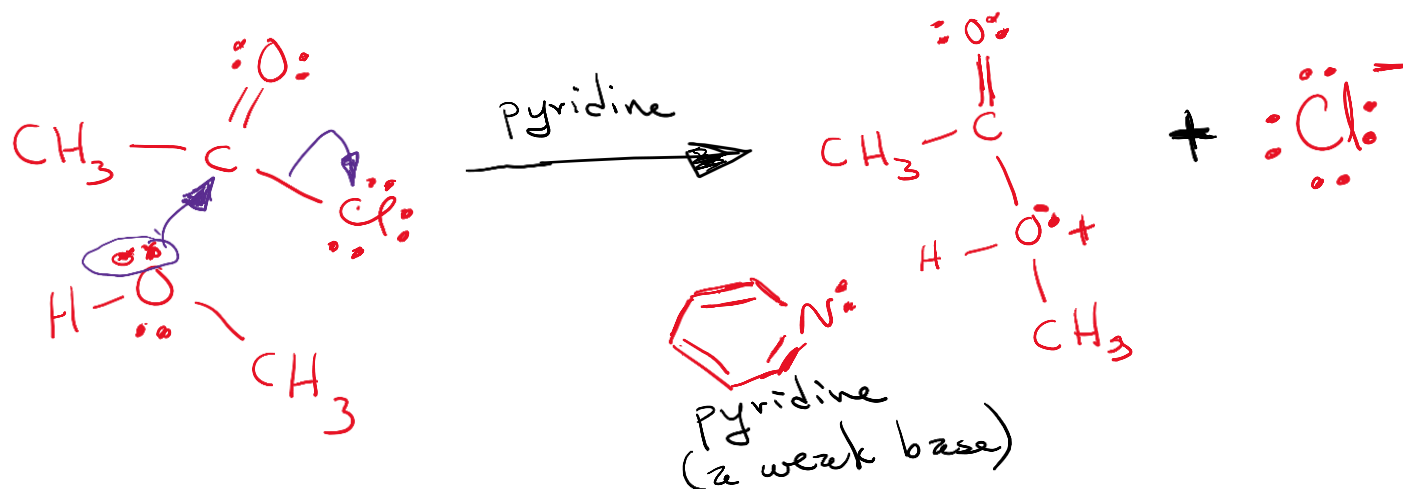 O
CH3 C Cl
H O CH3
pyridine
O
CH3 C
H O +
CH3
+ Cl −
N
pyridine
(a weak base)